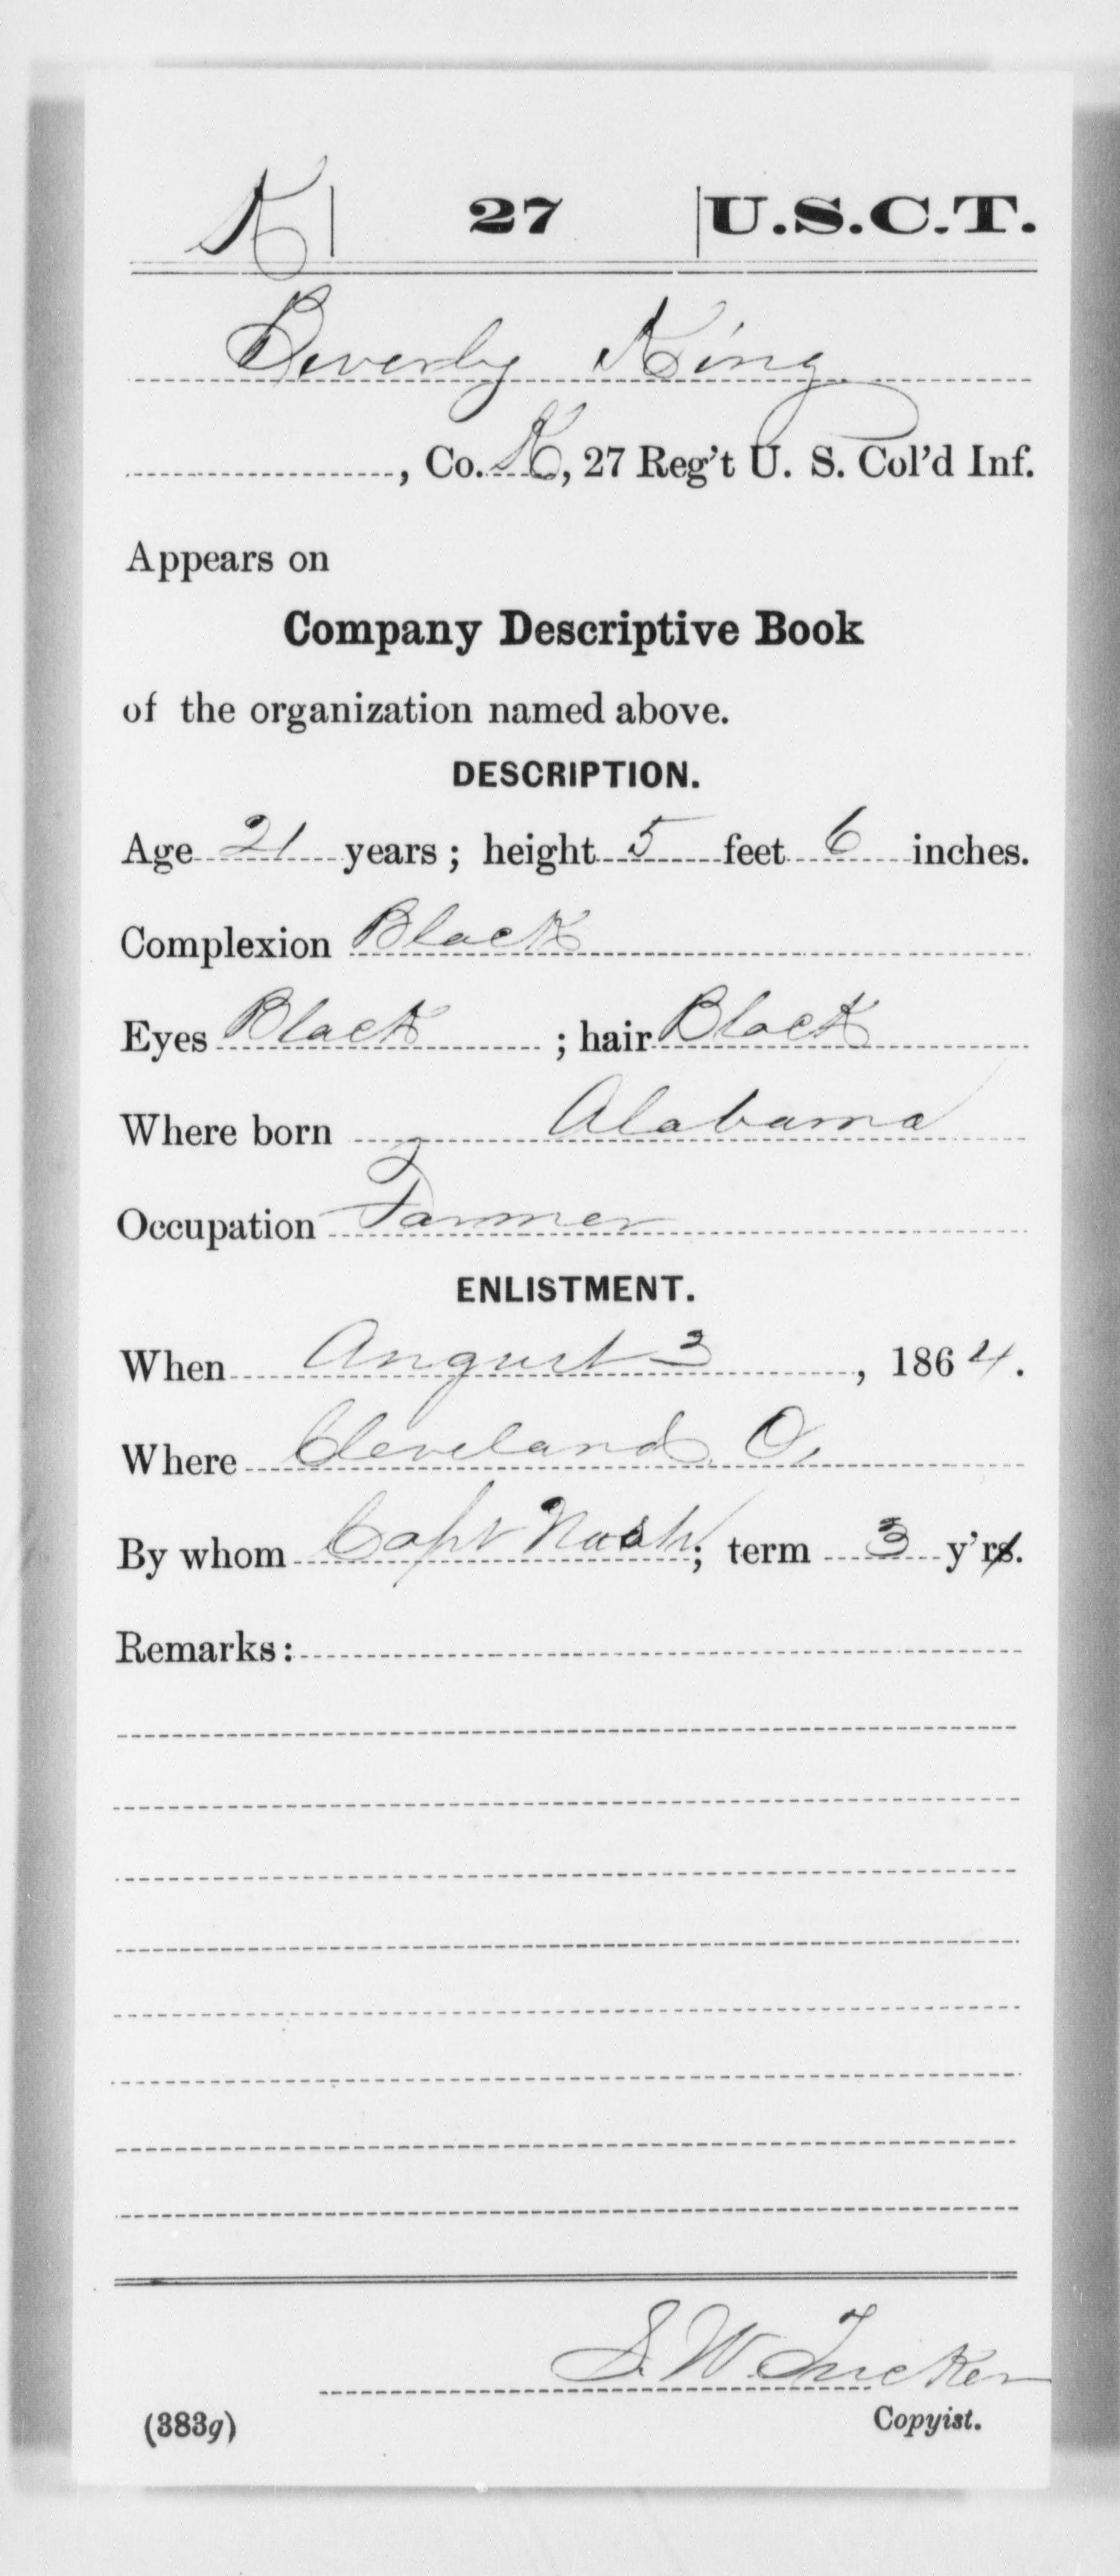 K | 27 | U.S.C.T.
Beverly King
, Co. K, 27 Reg't U. S. Col'd Inf.
Appears on
Company Descriptive Book
of the organization named above.
DESCRIPTION.
Age 21 years; height 5 feet 6 inches.
Complexion Black
Eyes Black ; hair Black
Where born Alabama
Occupation Farmer
ENLISTMENT.
When August 3, 1864.
Where Cleveland O,
By whom Capt Nash; term 3 y'rs.
Remarks:
S. W. Tucker
(383g) Copyist.